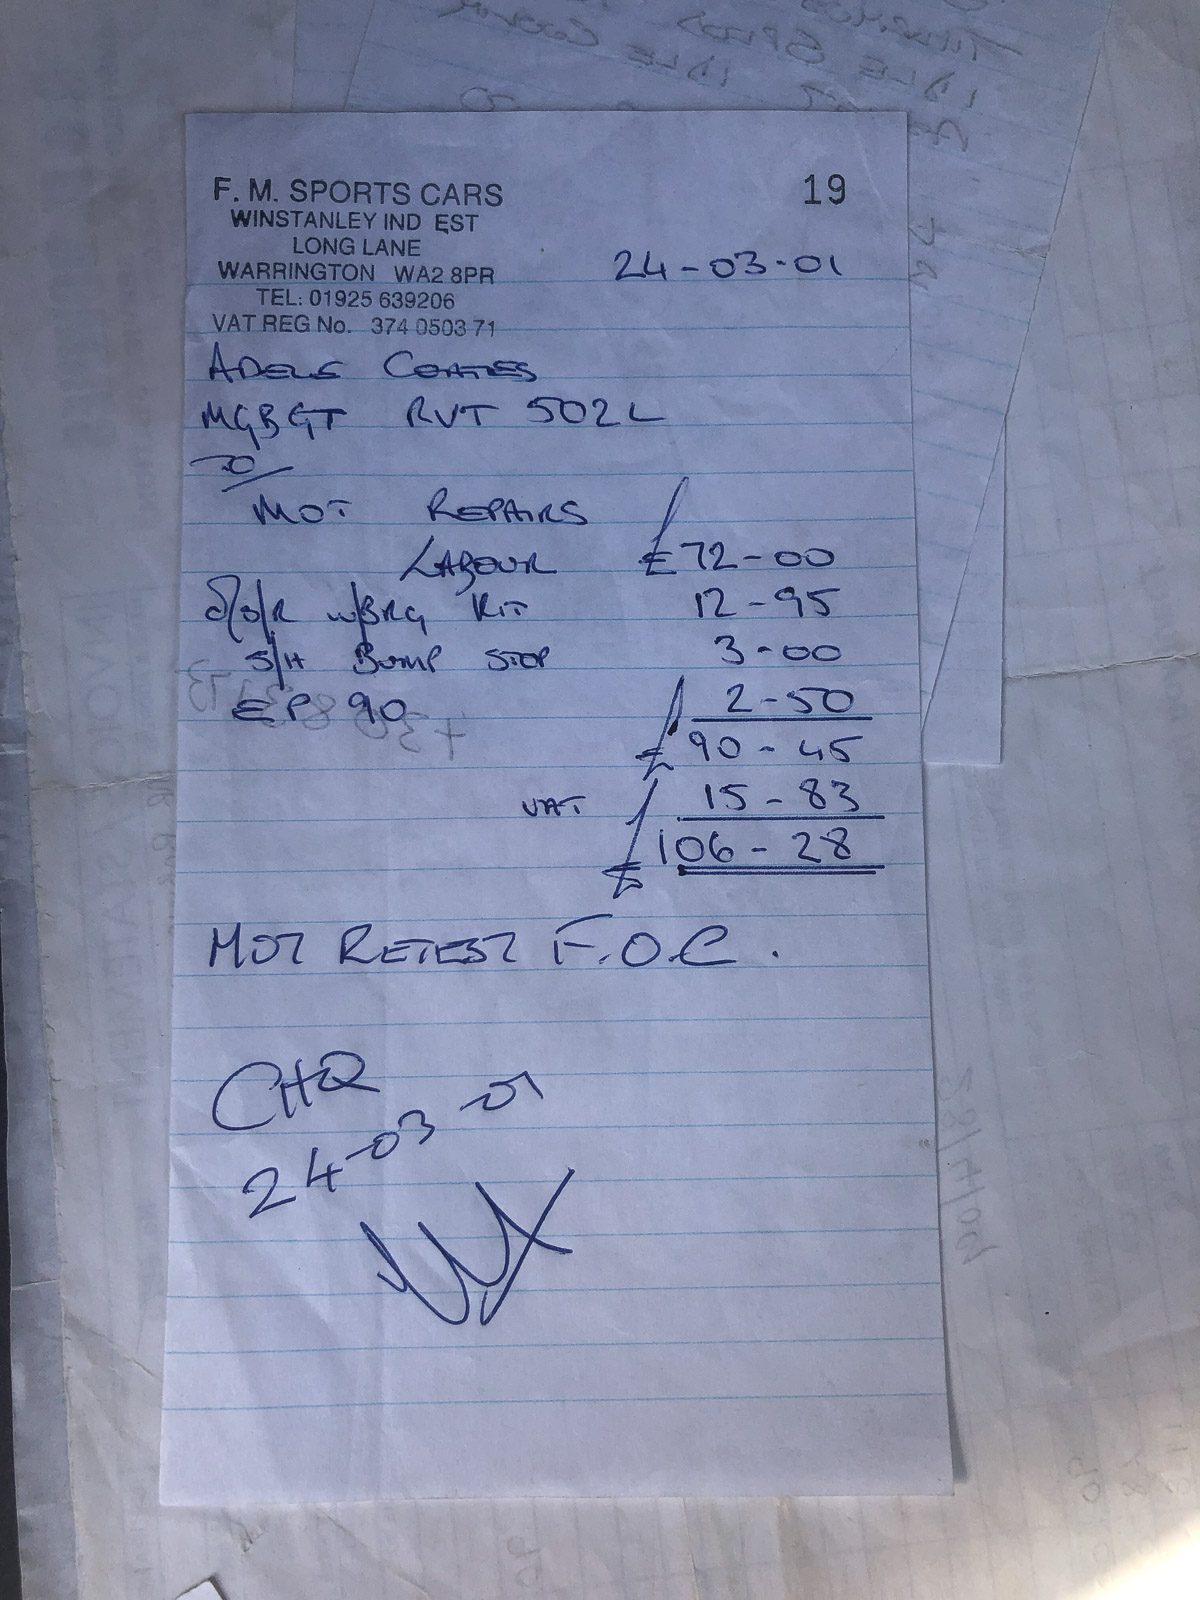 F. M. SPORTS CARS
19
WINSTANLEY IND EST
LONG LANE
WARRINGTON WA2 8PR
24-03-01
TEL: 01925 639206
VAT REG No. 374 0503 71
ADELE COATES
MGBGT RVT 502L
TO/
MOT REPAIRS
LABOUR £72-00
O/S/R W/BRG KIT 12-95
S/H BUMP STOP 3-00
EP 90 2-50
£ 90-45
VAT 15-83
£ 106-28
MOT RETEST F.O.C.
CHQ
24-03-01